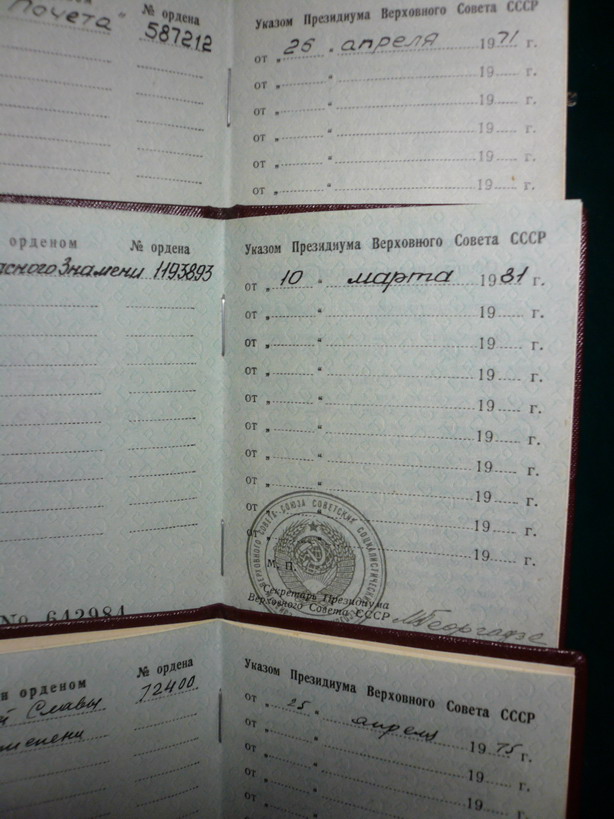 Почета" 587212
№ ордена
Указом Президиума Верховного Совета СССР
от „ 26 " апреля 1971 г.
от „ " 19 г.
от „ " 19 г.
от „ " 19 г.
от „ " 19 г.
от „ " 19 г.
орденом № ордена
асного Знамени 1193893
Указом Президиума Верховного Совета СССР
от „ 10 " марта 1981 г.
от „ " 19 г.
от „ " 19 г.
от „ " 19 г.
от „ " 19 г.
от „ " 19 г.
от „ " 19 г.
от „ " 19 г.
от „ " 19 г.
от „ " 19 г.
М. П.
Секретарь Президиума
Верховного Совета СССР
М Георгадзе
№ 642984
н орденом № ордена
й Славы 72400
тепени
Указом Президиума Верховного Совета СССР
от „ 25 " апреля 1975 г.
от „ " 19 г.
от „ " 19 г.
от „ " 19 г.